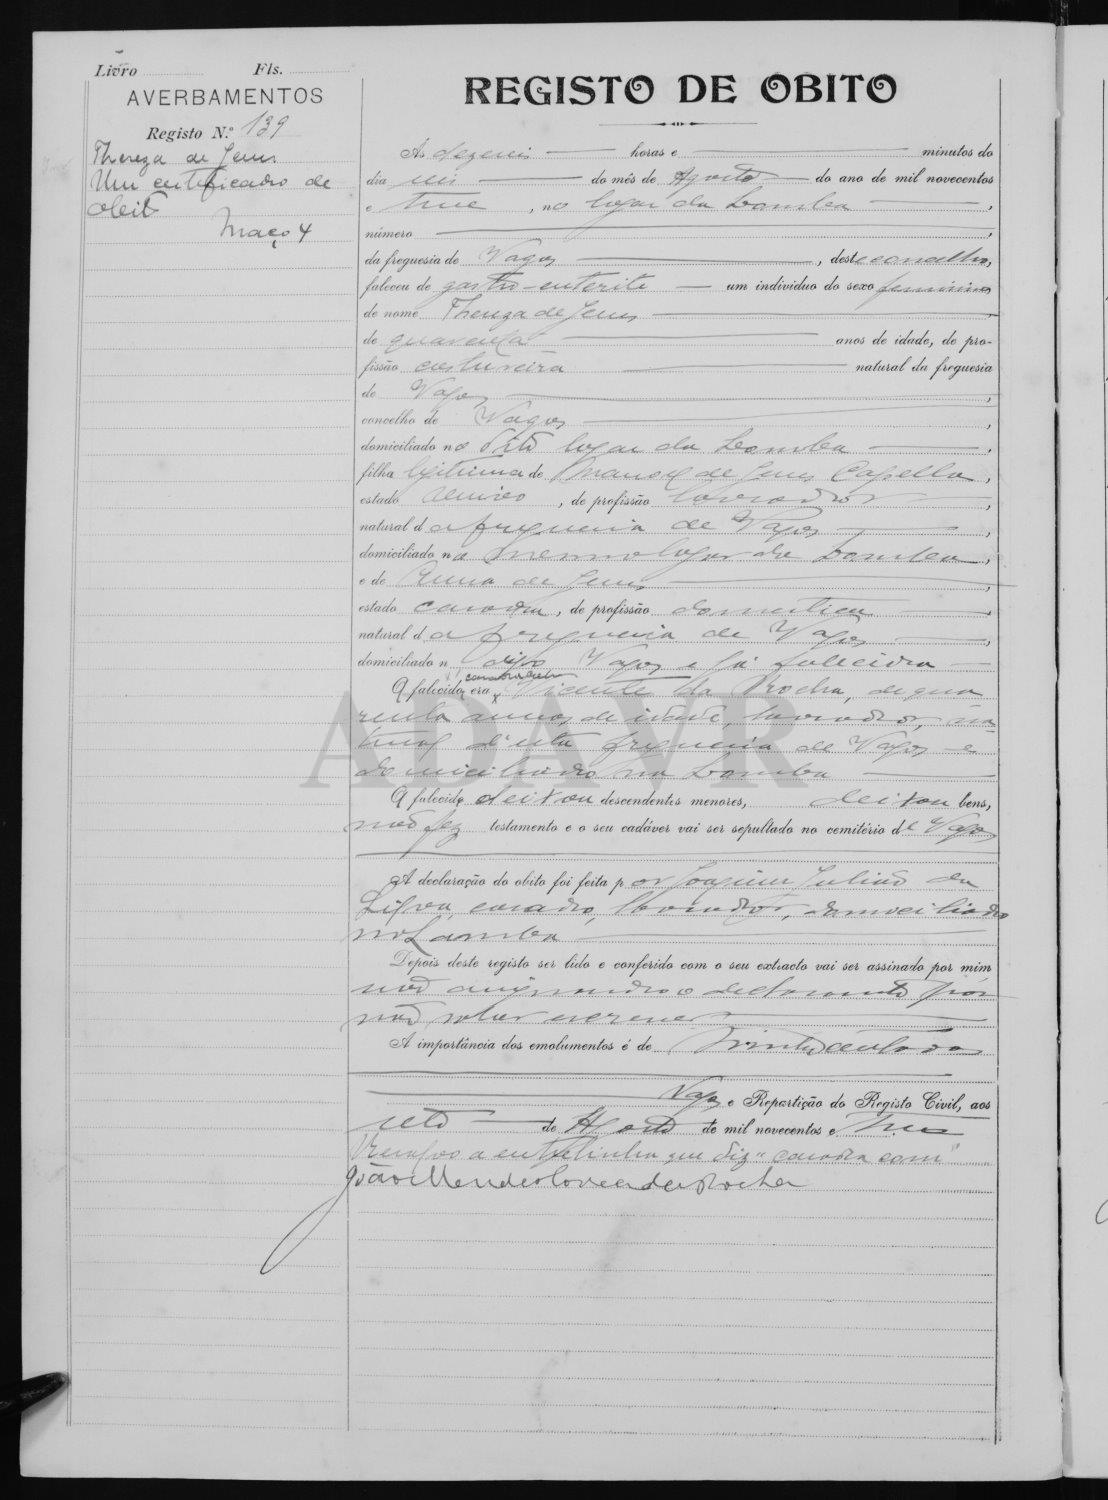 Livro Fls.
AVERBAMENTOS
Registo N.º 139
Thereza de Jesus
Um certificado de
obito
Maço 4
REGISTO DE OBITO
Ás dezeseis horas e minutos do
dia seis do mês de Agosto do ano de mil novecentos
e treze, no logar da Lomba,
número
da freguesia de Vagos, deste concelho,
faleceu de gastro-enterite um individuo do sexo feminino
de nome Thereza de Jesus
de quarenta anos de idade, de pro-
fissão costureira natural da freguesia
de Vagos,
concelho de Vagos,
domiciliado no dito logar da Lomba,
filha legitima de Manoel de Jesus Capella,
estado viuvo, de profissão lavrador,
natural da freguesia de Vagos,
domiciliado no mesmo logar da Lomba,
e de Anna de Jesus,
estado casada, de profissão domestica,
natural da freguesia de Vagos,
domiciliado n Vagos e já falecida
casada com
A falecida era Vicente da Rocha, de qua
renta annos de idade, lavrador, na-
tural d'esta freguesia de Vagos e
domiciliado na Lomba
A falecida deixou descendentes menores, deixou bens,
não fez testamento e o seu cadáver vai ser sepultado no cemitério de Vagos
A declaração do obito foi feita por Joaquim Julião da
Silva, casado, lavrador, domiciliado
no Lomba
Depois deste registo ser lido e conferido com o seu extracto vai ser assinado por mim
não assignando o declarante por
não saber escrever
A importância dos emolumentos é de trinta centavos
Vagos e Repartição do Registo Civil, aos
sete de Agosto de mil novecentos e treze
Resalvo a entrelinha que diz "casada com"
João Mendes Correia da Rocha
ADAVR